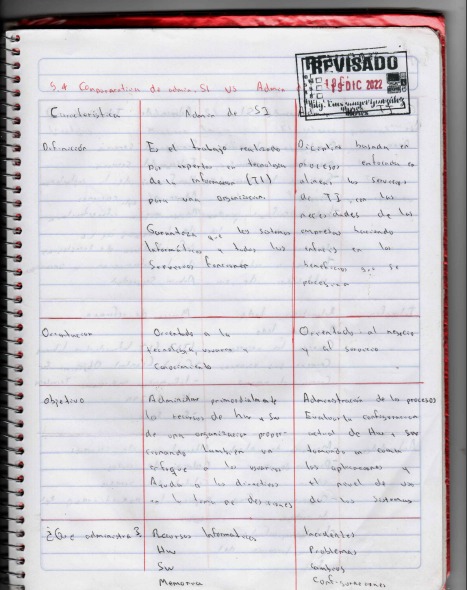 REVISADO
15 DIC 2022
5.4 Comparación de admin. SI VS Admin
Característica
Admin de SI
Definición
Es el trabajo realizado
por expertos en tecnología
de la información (TI)
para una organización.
Garantiza que los sistemas
Informáticos y todos los
Servicios funcionen
Disciplina basada en
procesos enfocada en
alinear los servicios
de TI con las
necesidades de las
empresas haciendo
énfasis en los
beneficios que se
Orientacion
Orientado a la
tecnología, usuario y
Conocimiento
Orientado al negocio
y al servicio
Objetivo
Administrar primordialmente
los recursos de hw y sw
de una organización propor-
cionando también un
enfoque a los usuarios
Ayuda a los directivos
en la toma de decisiones
Administración de los procesos
Evaluar la configuración
actual de Hw y sw
tomando en cuenta
las aplicaciones y
el nivel de uso
de los sistemas
¿Qué administra?
Recursos Informáticos
Hw
Sw
Memoria
Incidentes
Problemas
Cambios
Configuraciones